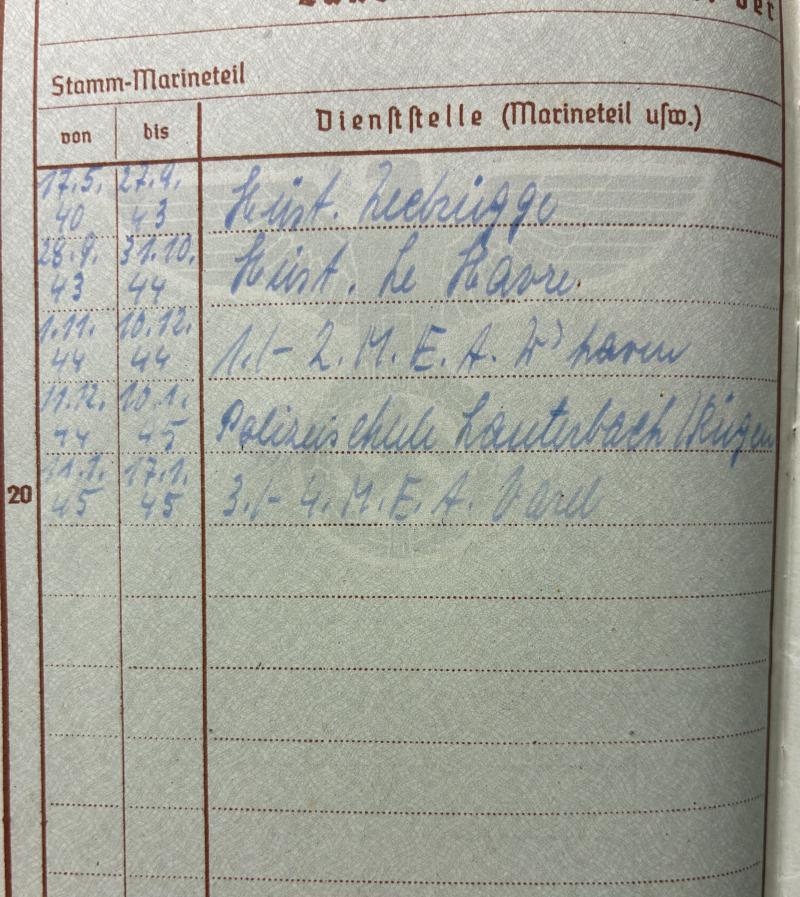 der
Stamm-Marineteil
von bis Dienststelle (Marineteil usw.)
17.5. 27.9.
40 43 Hüst. Zeebrügge
28.9. 31.10.
43 44 Hüst. Le Havre
1.11. 10.12.
44 44 1./- 2. M. E. A. W'haven
11.12. 10.1.
44 45 Polizeischule Lauterbach/Rügen
11.1. 17.1.
45 45 3./- 4. M. E. A. Varel
20